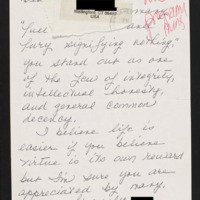 USA
"full and
fury signifying nothing,"
you stand out as one
of the few of integrity,
intellectual honesty,
and general common
decency.
I believe life is
easier if you believe
virtue is its own reward
but I'm sure you are
appreciated by many.